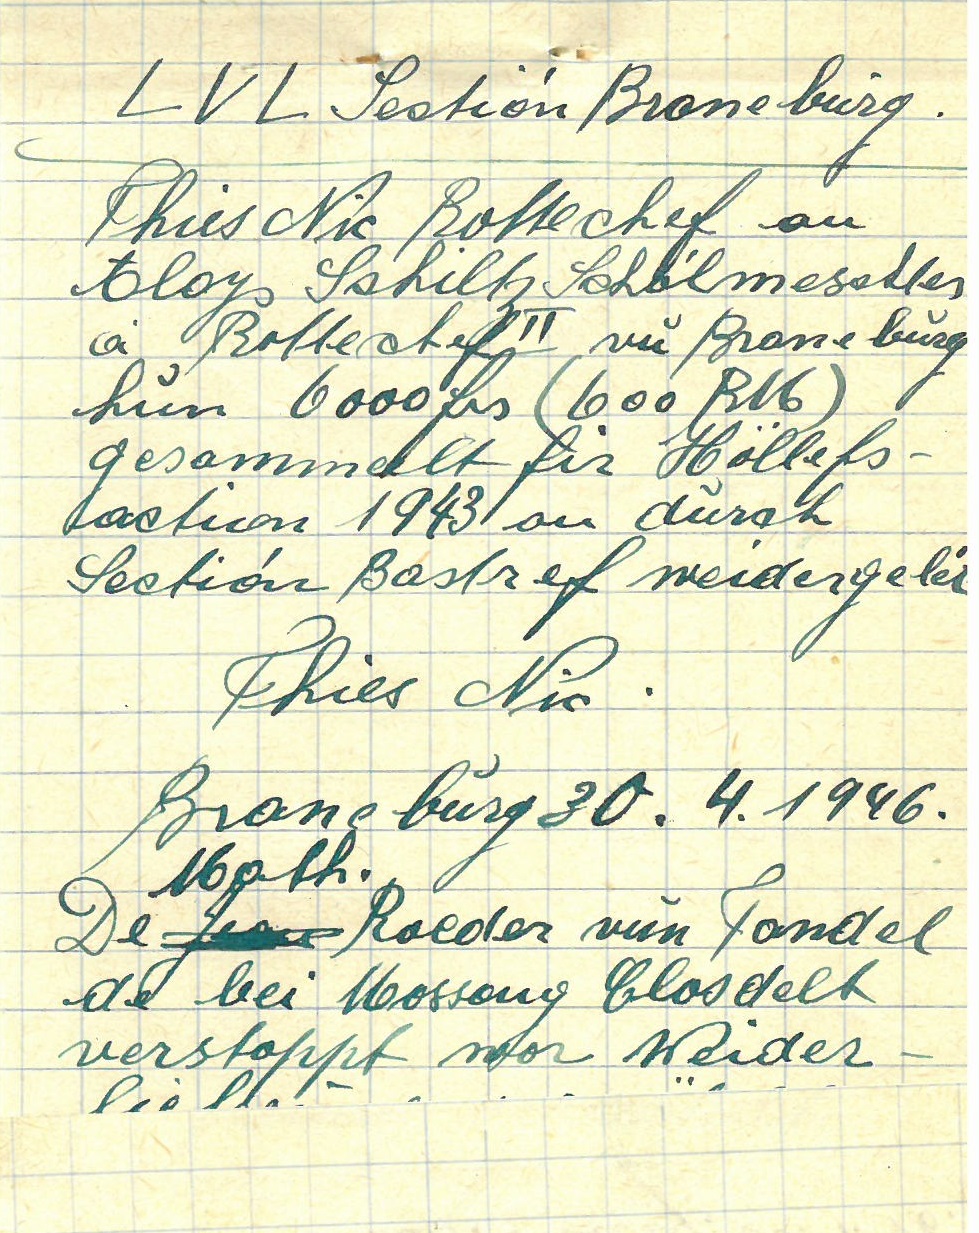 LVL Sectión Braneburg.
Thies Nic Rottechef an
Eloys Schiltz Schólmeschter
a Rottechef II vŭ Braneburg
hŭn 6000 frs (600 RM)
gesammelt fir Höllefs-
actiion 1943 an dŭrch
Sectión Bastref weidergelei
Thies Nic.
Braneburg 30. 4. 1946.
Math.
De Roeder vŭn Tandel
dé bei Mossong Closdelt
verstoppt wor Weider-